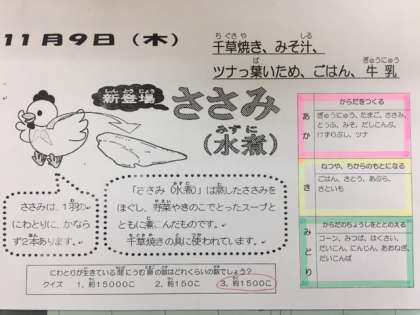 11月9日（木）
千草焼き、みそ汁、
ツナっ葉いため、ごはん、牛乳
新登場
ささみ
（水煮）
ささみは、1羽の
にわとりに、かなら
ず2本あります。
「ささみ（水煮）」は蒸したささみを
ほぐし、野菜やきのこでとったスープと
ともに煮こんだものです。
千草焼きの具に使われています。
にわとりが生きている間にうむ卵の数はどれくらいの数でしょう？
クイズ　1．約15000こ　2．約150こ　3．約1500こ
あか
からだをつくる
ぎゅうにゅう、たまご、ささみ、
とうふ、みそ、だしこんぶ、
けずりぶし、ツナ
き
ねつや、ちからのもとになる
ごはん、さとう、あぶら、
さといも
みどり
からだのちょうしをととのえる
コーン、みつば、はくさい、
だいこん、にんじん、あおねぎ、
だいこんば